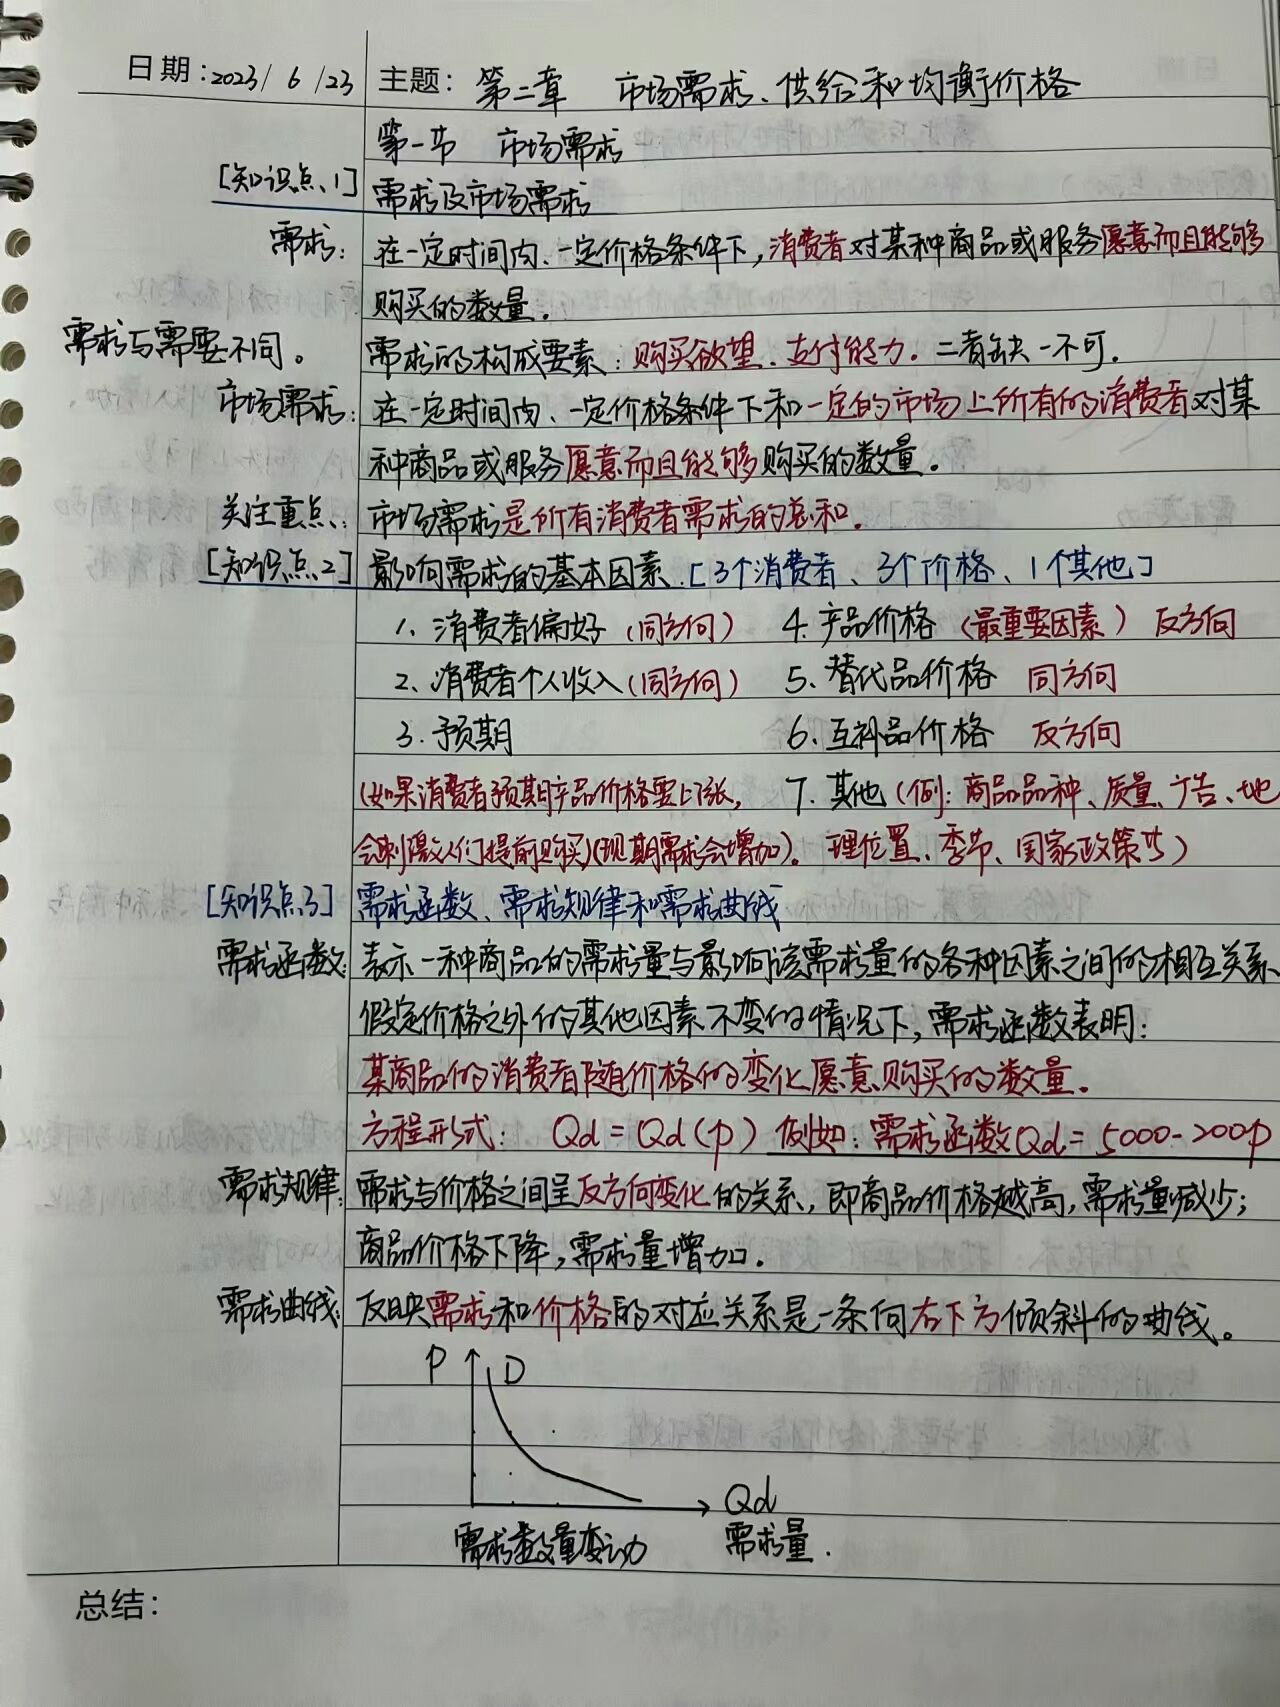 日期:2023/6/23 主题: 第二章 市场需求、供给和均衡价格
第一节 市场需求
[知识点、1] 需求及市场需求
需求: 在一定时间内、一定价格条件下,消费者对某种商品或服务愿意而且能够
购买的数量.
需求与需要不同。 需求的构成要素:购买欲望、支付能力.二者缺一不可.
市场需求: 在一定时间内、一定价格条件下和一定的市场上所有的消费者对某
种商品或服务愿意而且能够购买的数量.
关注重点: 市场需求是所有消费者需求的总和.
[知识点2] 影响需求的基本因素.[3个消费者、3个价格、1个其他]
1、消费者偏好(同方向) 4.产品价格(最重要因素)反方向
2、消费者个人收入(同方向) 5、替代品价格 同方向
3.预期 6、互补品价格 反方向
(如果消费者预期产品价格要上涨, 7.其他(例:商品品种、质量、广告、地
会刺激人们提前购买)(现期需求会增加)。 理位置、季节、国家政策等)
[知识点3] 需求函数、需求规律和需求曲线
需求函数: 表示一种商品的需求量与影响该需求量的各种因素之间的相互关系
假定价格之外的其他因素不变的情况下,需求函数表明:
某商品的消费者随价格的变化愿意购买的数量.
方程形式: Qd=Qd(p) 例如:需求函数Qd=5000-200p
需求规律: 需求与价格之间呈反方向变化的关系,即商品价格越高,需求量减少;
商品价格下降,需求量增加.
需求曲线: 反映需求和价格的对应关系是一条向右下方倾斜的曲线。
P D
Qd
需求数量变动 需求量.
总结: